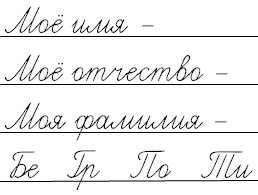 Моё имя –
Моё отчество –
Моя фамилия –
Бе Гр По Ти